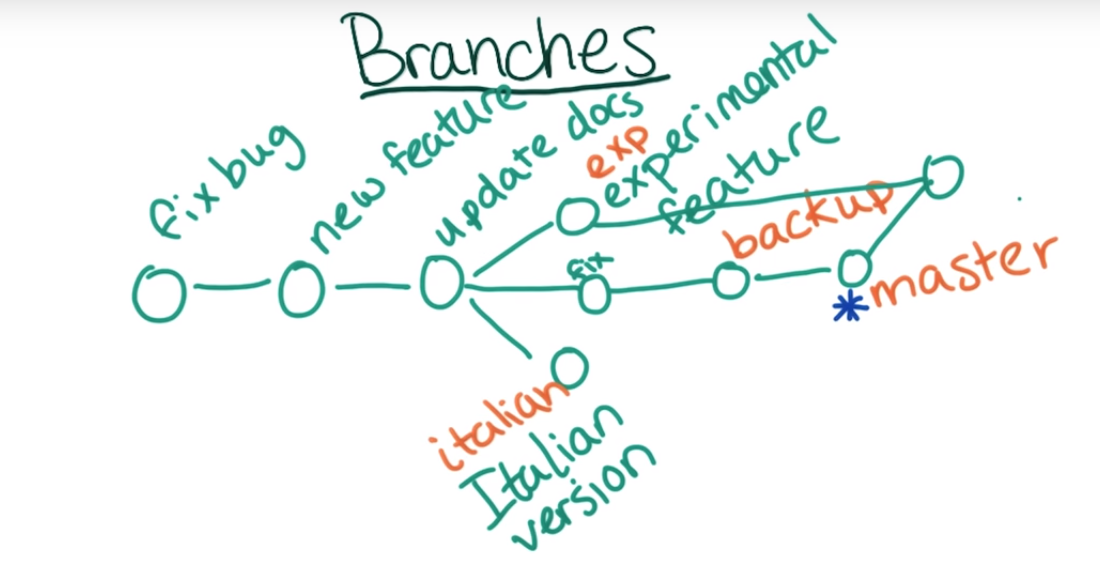 Branches
fix bug
new feature
update docs
exp
experimental
feature
fix
backup
*master
italian
Italian
version